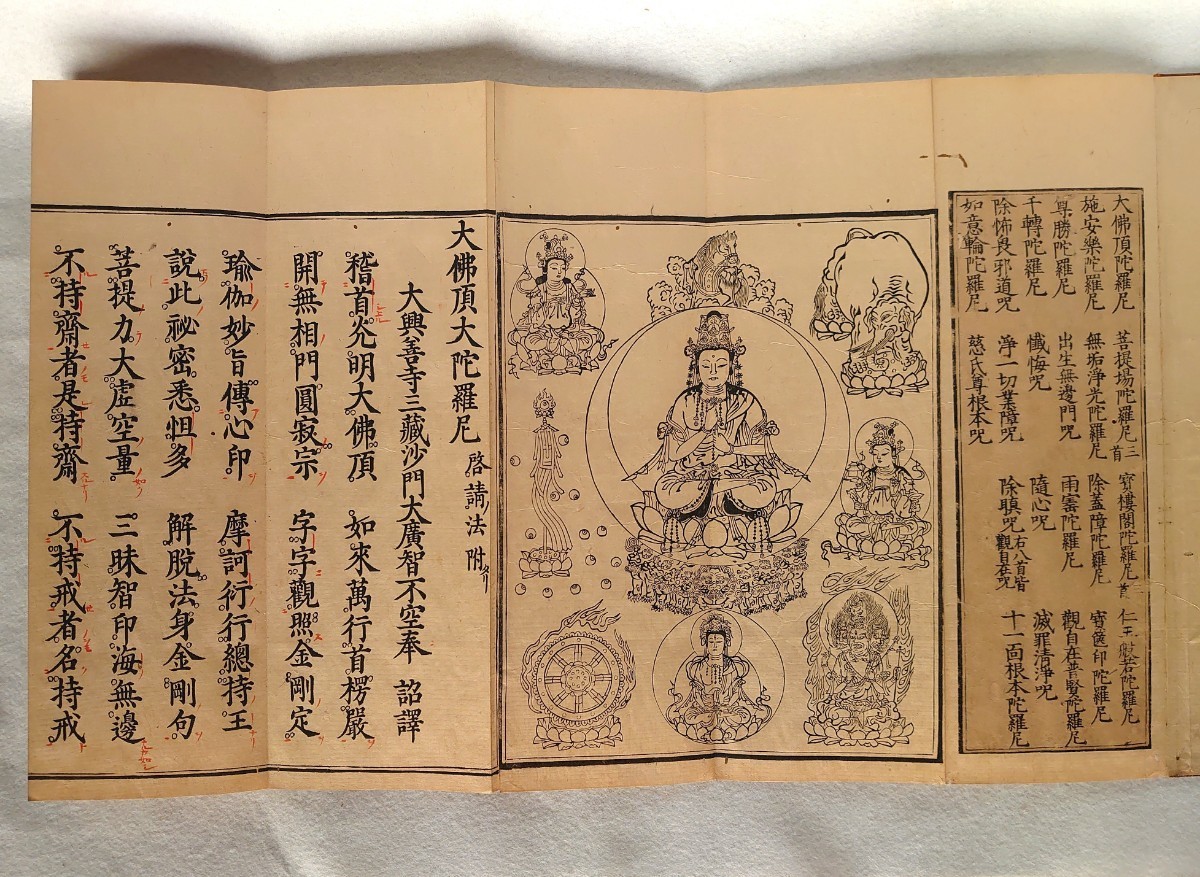 大佛頂陀羅尼 菩提場陀羅尼三首 寶樓閣陀羅尼三首 仁王般若陀羅尼
施安樂陀羅尼 無垢淨光陀羅尼 除蓋障陀羅尼 寶篋印陀羅尼
尊勝陀羅尼 出生無邊門咒 雨寶陀羅尼 觀自在普賢陀羅尼
千轉陀羅尼 懺悔咒 隨心咒 滅罪清淨咒
除怖畏邪道咒 淨一切業障咒 除瞋咒右八首皆觀自在咒 十一面根本陀羅尼
如意輪陀羅尼 慈氏尊根本咒
大佛頂大陀羅尼 啓請法附
大興善寺三藏沙門大廣智不空奉 詔譯
稽首光明大佛頂 如來萬行首楞嚴
開無相門圓寂宗 字字觀照金剛定
瑜伽妙旨傳心印 摩訶衍行總持王
說此祕密悉怛多 解脫法身金剛句
菩提力大虛空量 三昧智印海無邊
不持齋者是持齋 不持戒者名持戒